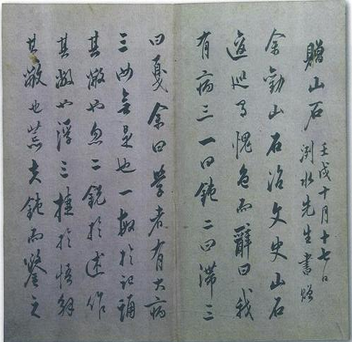 贈山石
壬戌十月十七日
先生書贈
余勸山石治文史山石
逡巡有愧色而辭曰我
有病三一曰鈍二曰滯三
曰戛余曰學者有大病
三汝無是也一敏於記誦
其敝也忽二銳於述作
其敝也浮三捷於悟解
其敝也荒夫鈍而鑿之